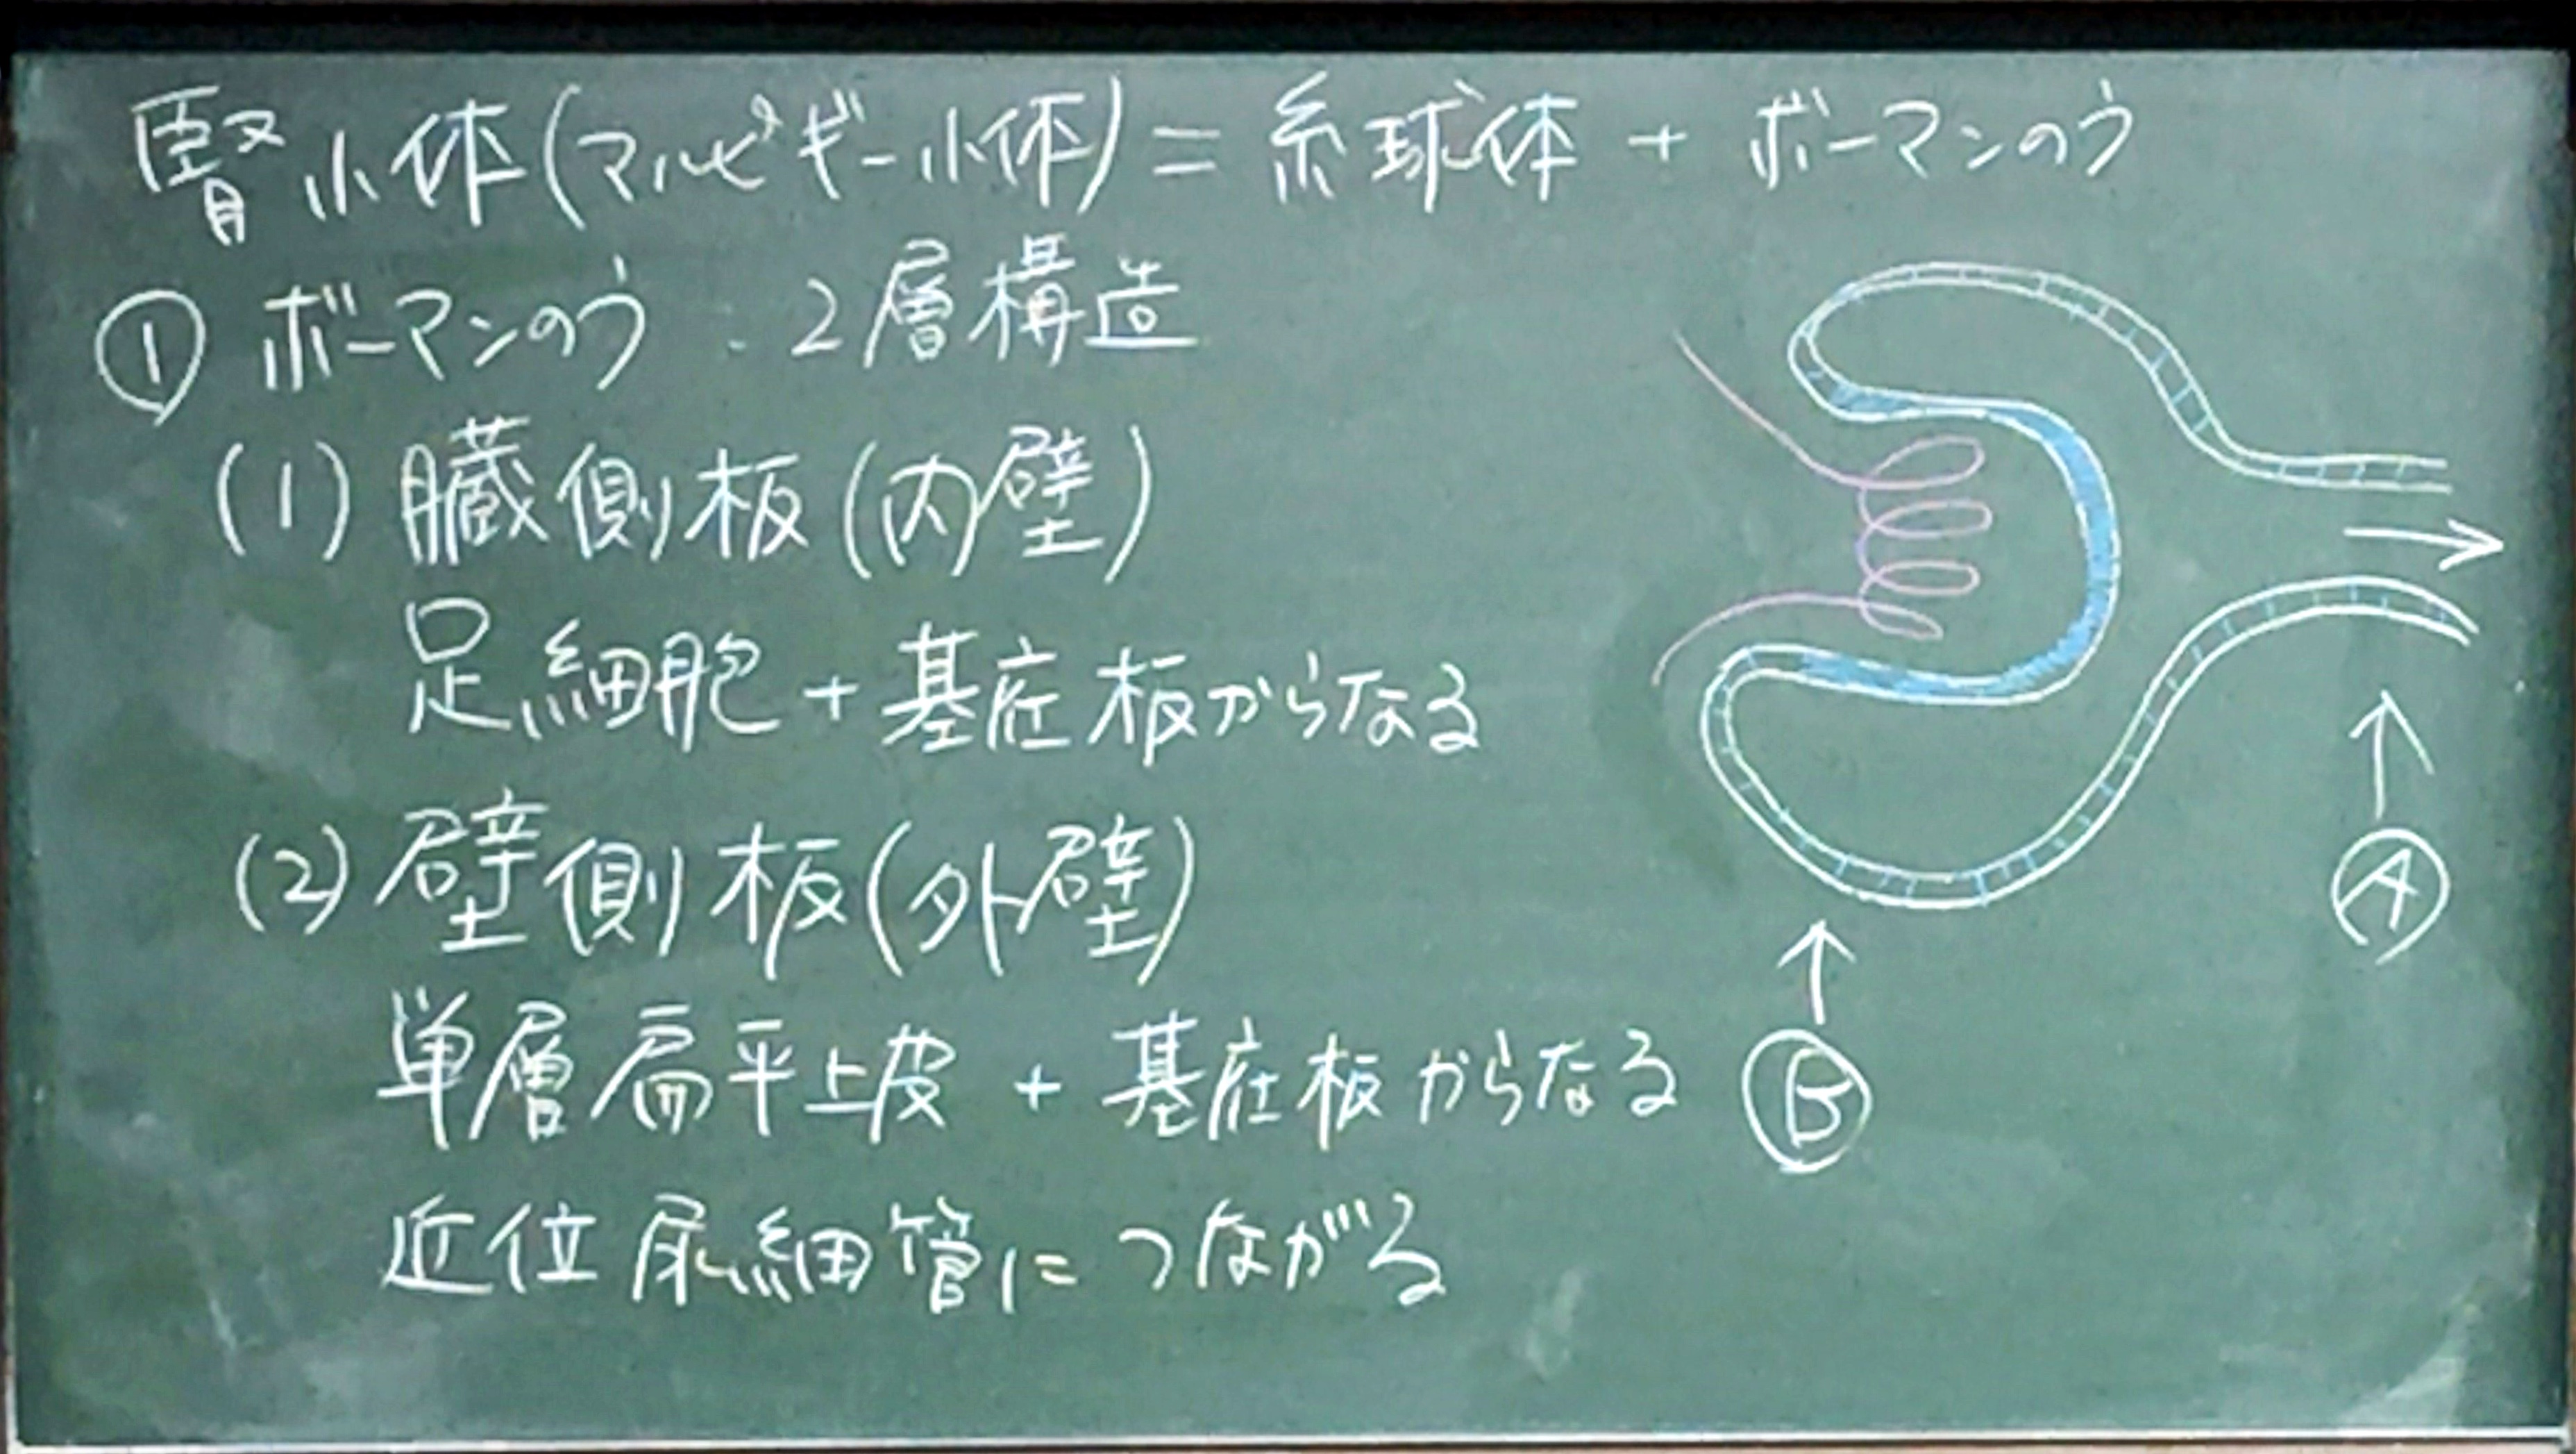 腎小体(マルピギー小体)=糸球体 + ボーマンのう
① ボーマンのう - 2層構造
(1) 臓側板(内壁)
足細胞+基底板からなる
(2) 壁側板(外壁)
単層扁平上皮 + 基底板からなる
近位尿細管につながる
Ⓐ
Ⓑ